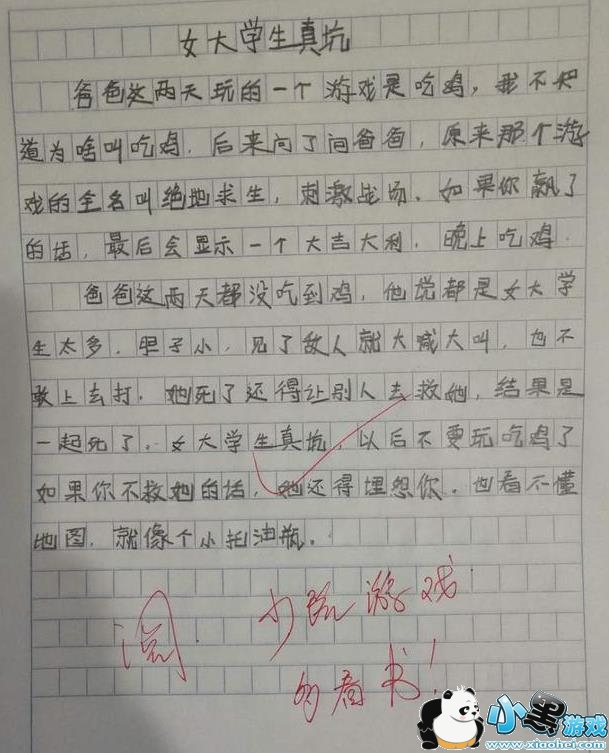 女大学生真坑
爸爸这两天玩的一个游戏是吃鸡，我不知
道为啥叫吃鸡．后来问了问爸爸，原来那个游
戏的全名叫绝地求生，刺激战场．如果你飙了
的话，最后会显示一个大吉大利．晚上吃鸡．
爸爸这两天都没吃到鸡，他说都是女大学
生太多．胆子小．见了敌人就大喊大叫．也不
敢上去打．她死了还得让别人去救她，结果是
一起死了．女大学生真坑，以后不要玩吃鸡了
如果你不救她的话，她还得埋怨你．也看不懂
地图．就像个小拖油瓶．
阅．
少玩游戏
多看书！
小黑游戏
www.xiaohei.com